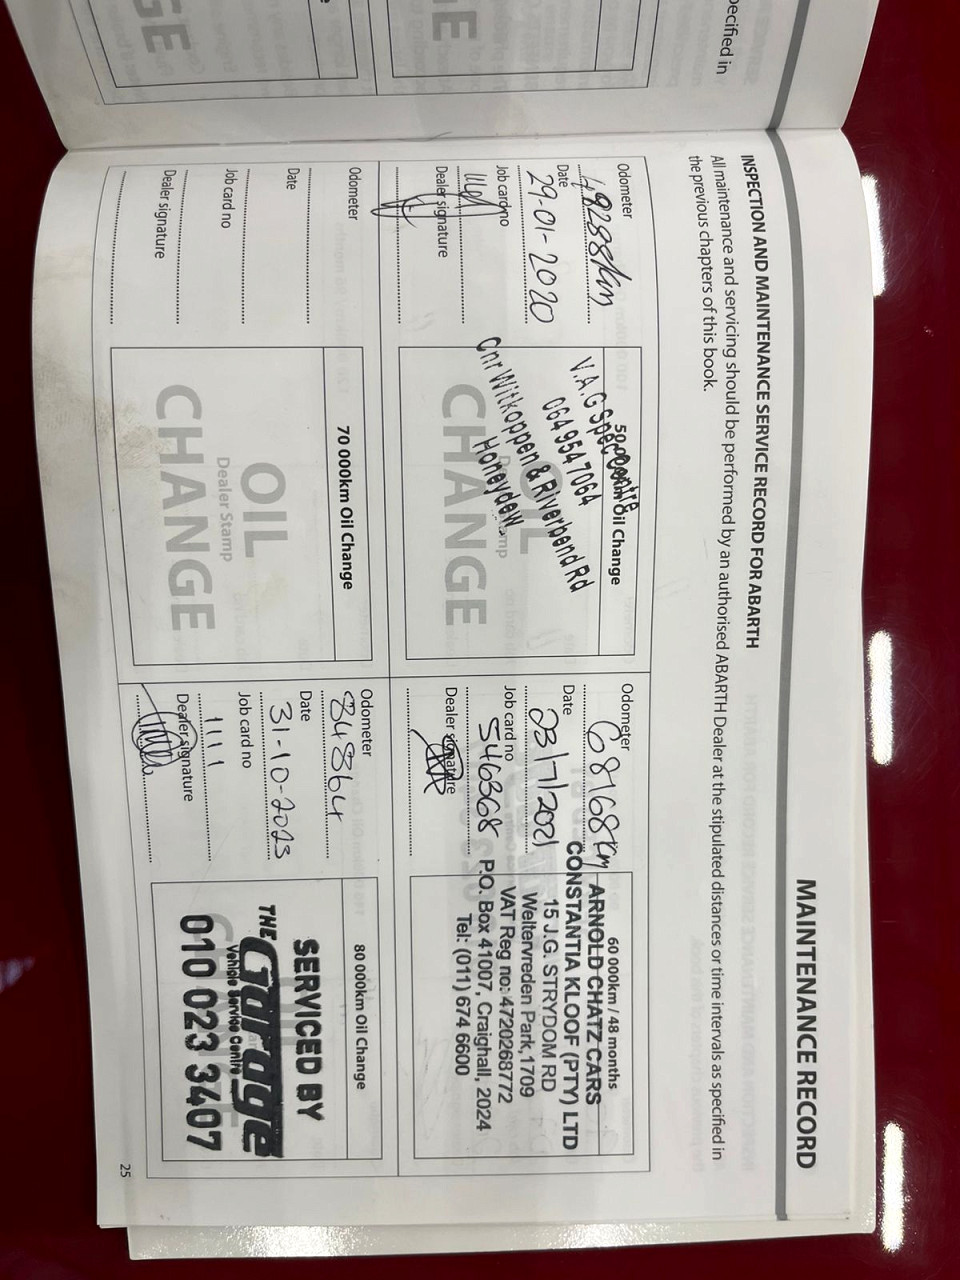 pecified in
MAINTENANCE RECORD
INSPECTION AND MAINTENANCE SERVICE RECORD FOR ABARTH
All maintenance and servicing should be performed by an authorised ABARTH Dealer at the stipulated distances or time intervals as specified in
the previous chapters of this book.
Odometer
49288km
Date
29-01-2020
Job card no
Dealer signature
50 000km Oil Change
OIL
CHANGE
V.A.G Spec Centre
064 954 7064
Cnr Witkoppen & Riverbend Rd
Honeydew
Odometer
68168km
Date
23/7/2021
Job card no
546368
Dealer signature
60 000km / 48 months
ARNOLD CHATZ CARS
CONSTANTIA KLOOF (PTY) LTD
15 J.G. STRYDOM RD
Weltervreden Park,1709
VAT Reg no: 4720268772
P.O. Box 41007, Craighall, 2024
Tel: (011) 674 6600
Odometer
Date
Job card no
Dealer signature
70 000km Oil Change
OIL
Dealer Stamp
CHANGE
Odometer
84864
Date
31-10-2023
Job card no
1111
Dealer signature
80 000km Oil Change
SERVICED BY
THE Garage
Vehicle Service Centre
010 023 3407
25